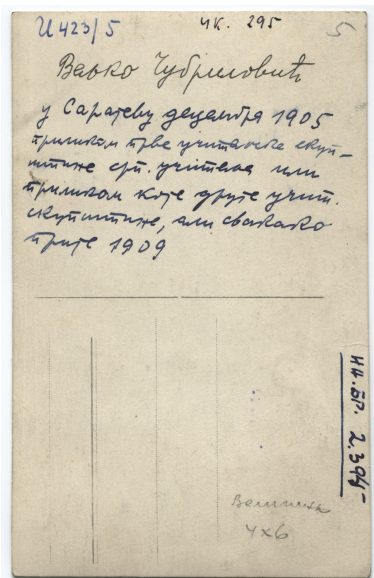 И 423/5
чк. 295
5
Вељко Чубриловић
у Сарајеву децембра 1905
приликом прве учитељске скуп-
штине срп. учитеља или
приликом које друге учит.
скупштине, али свакако
прије 1909
ИН. БР. 2.394/5
Величина
4x6